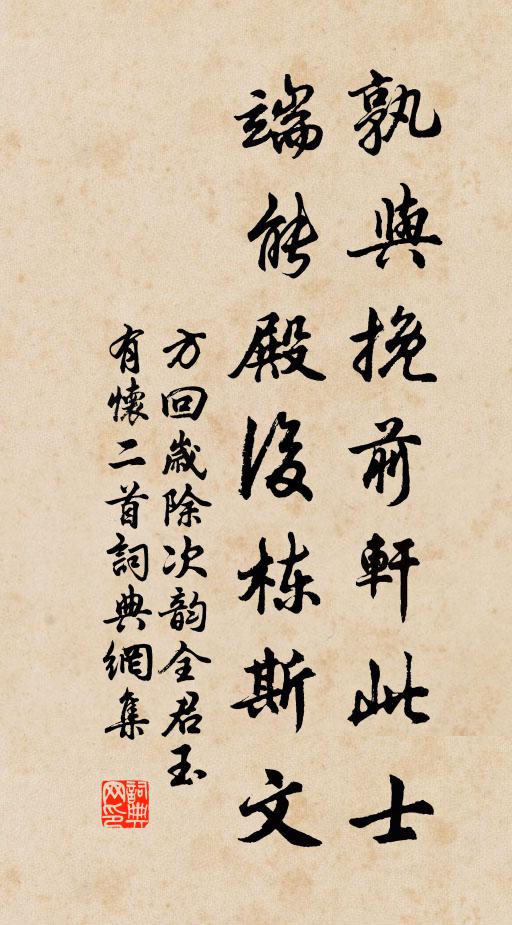 孰與挽前軒此士
端能殿後栋斯文
方回歲除次韵全君玉
有懷二首詞典網集
詞典网印